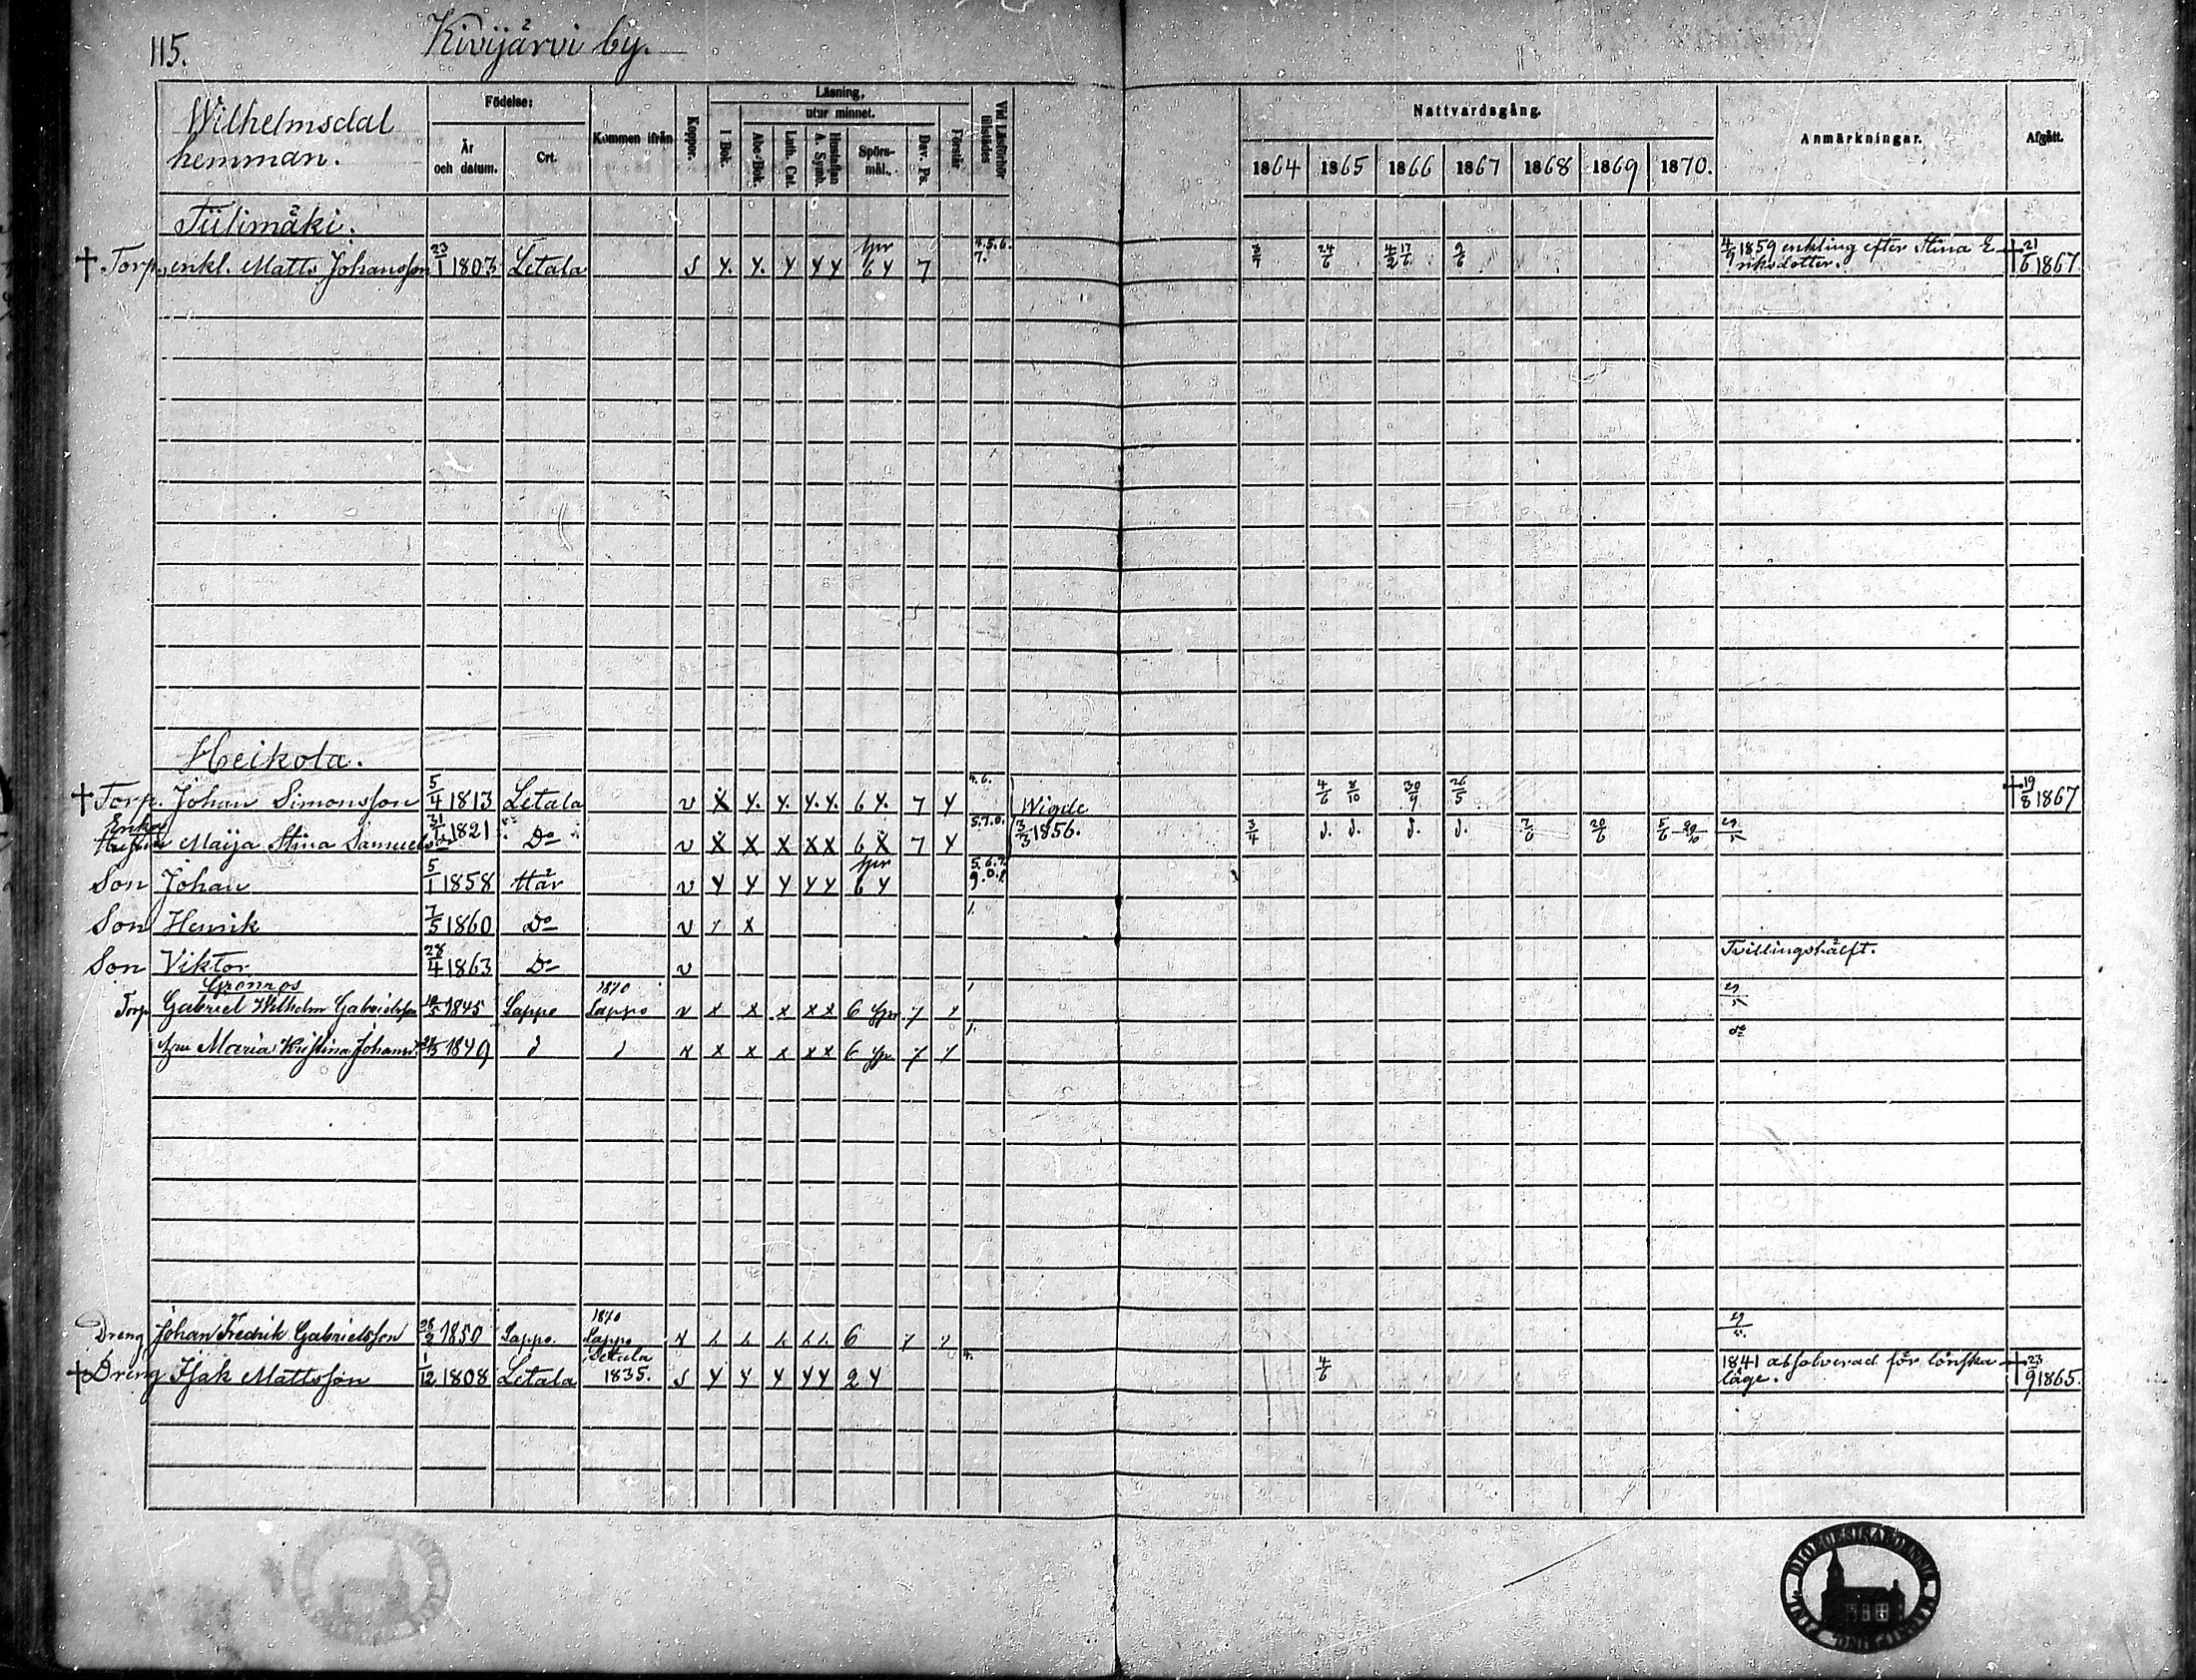 115.
Kivijärvi by.
Wilhelmsdal
hemman.
Födelse:
År
och datum.
Ort.
Kommen ifrån
Koppor.
Läsning,
utur minnet.
I Bok.
Abc-Bok.
Luth. Cat.
Hustaflan
A. Symb.
Spörs-
mål.
Dav. Ps.
Förstår
Vid Läsförhör
tillstädes
Nattvardsgång.
1864 1865 1866 1867 1868 1869 1870.
Anmärkningar.
Afgått.
Tiilimäki.
† Torp. enkl. Matts Johansson 23/1 1803 Letala S Y. Y. Y Y Y 6 Y 7 4.5.6. 7. 24/6 4/2 17/6 9/6 4/9 1859 enkling efter Stina E-
riksdotter. † 21/6 1867
Heikola.
† Torp. Johan Simonsson 5/4 1813 Letala v X Y. Y. Y. Y. 6 Y. 7 Y 4.6. Wigde 4/6 8/10 30/9 26/5 † 19/8 1867
Enkan
Hustrun Maija Stina Samuelsdr 31/12 1821 Do v X X X X X 6 X 7 Y 5.7.0. 3/3 1856. 3/4 d. d. d. d. 7/6 20/6
Son Johan 5/1 1858 Här v Y Y Y Y Y 6 Y 5.6.7. 9.0.1.
Son Henrik 7/5 1860 Do v X 1.
Son Viktor 28/4 1863 Do v Tvillingshälft.
Grönros
Torp Gabriel Wilhelm Gabrielsson 1845 Lappo 1870 Lappo v x x x x x 6 7
Maria Kristina Johansd. 1849 x x x x x 6 7
Dreng Johan Fredrik Gabrielsson 28/2 1850 Lappo. 1870 Lappo 6
† Dreng Isak Mattsson 1/12 1808 Letala Letala 1835. S Y Y Y Y Y 2 Y 4. 4/6 1841 absolverad för lönska-
läge. † 23/9 1865.